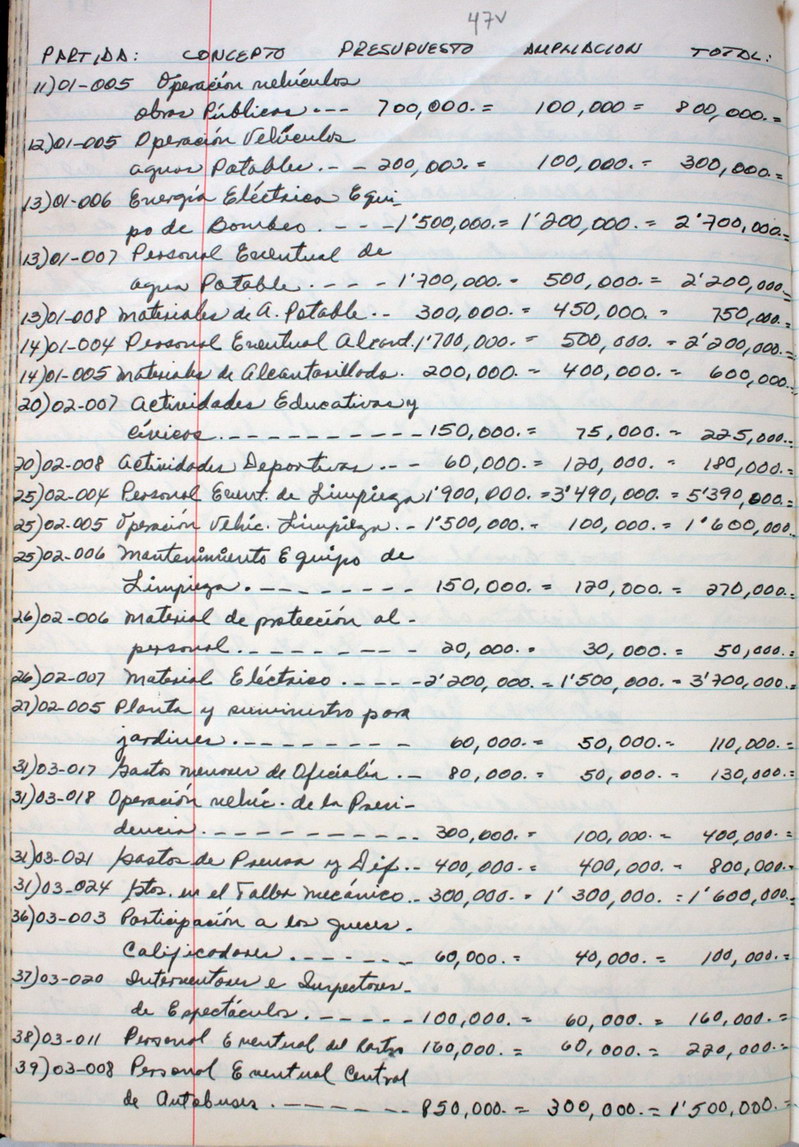 47v
PARTIDA: CONCEPTO PRESUPUESTO AMPLIACION TOTAL:
11)01-005 Operación vehículos
obras Públicas.--- 700,000.= 100,000= 800,000.=
12)01-005 Operación Vehículos
aguas Potables.-- 200,000.= 100,000.= 300,000.=
13)01-006 Energía Eléctrica Equi-
po de Bombeo.----1'500,000.= 1'200,000.= 2'700,000.=
13)01-007 Personal Eventual de
agua Potable.---- 1'700,000.- 500,000.= 2'200,000.=
13)01-008 Materiales de A. Potable.-- 300,000.= 450,000.= 750,000.=
14)01-004 Personal Eventual Alcant.1'700,000.= 500,000.= 2'200,000.=
14)01-005 Materiales de Alcantarillado. 200,000.= 400,000.= 600,000.=
20)02-007 Actividades Educativas y
cívicas.----------150,000.= 75,000.= 225,000.=
20)02-008 Actividades Deportivas.-- 60,000.= 120,000.= 180,000.=
25)02-004 Personal Event. de Limpieza 1'900,000.=3'490,000.= 5'390,000.=
25)02-005 Operación Vehic. Limpieza.- 1'500,000.- 100,000.= 1'600,000.
25)02-006 Mantenimiento Equipo de
Limpieza.-------- 150,000.= 120,000.= 270,000.=
26)02-006 Material de protección al-
personal.-------- 20,000.= 30,000.= 50,000.=
26)02-007 Material Eléctrico.----2'200,000.-1'500,000.-3'700,000.=
27)02-005 Planta y suministro para
jardines.-------- 60,000.= 50,000.- 110,000.=
31)03-017 Gastos menores de Oficialía.-- 80,000.= 50,000.- 130,000.=
31)03-018 Operación vehic. de la Presi-
dencia.---------- 300,000.- 100,000.- 400,000.=
31)03-021 Gastos de Prensa y Dif.-- 400,000.- 400,000.- 800,000.-
31)03-024 Gtos. en el Taller mecánico.- 300,000.- 1'300,000.=1'600,000.
36)03-003 Participación a los jueces.
Calificadores.------ 60,000.= 40,000.= 100,000.=
37)03-020 Interventores e Inspectores-
de Espectáculos.----- 100,000.= 60,000.= 160,000.=
38)03-011 Personal Eventual del Rastro 160,000.= 60,000.= 220,000.=
39)03-008 Personal Eventual Central
de Autobuses.-------- 850,000.= 300,000.= 1'500,000.=